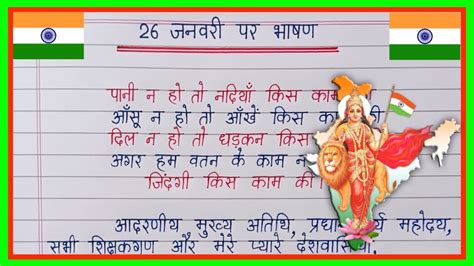 26 जनवरी पर भाषण
पानी न हो तो नदियाँ किस
आँसू न हो तो आँखें किस
दिल न हो तो धड़कन किस
अगर हम वतन के काम न
जिंदगी किस काम की।
आदरणीय मुख्य अतिथि, महोदय,
सभी शिक्षकगण और मेरे प्यारे देशवासियों।